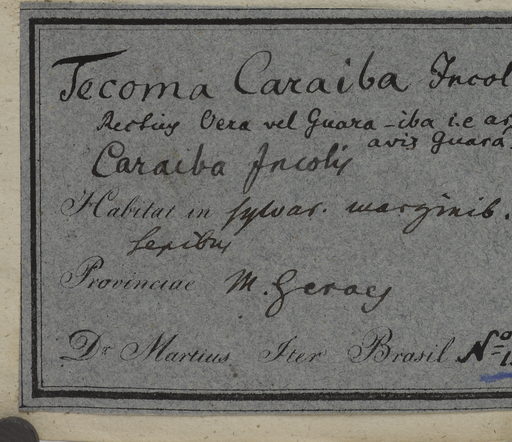 Tecoma Caraiba Incol
Rectius Vera vel Guara-iba i.e ar
avis Guara
Caraiba Incolis
Habitat in sylvar. marginib.
sepibus
Provinciae M. Geraes
Dr. Martius Iter Brasil No